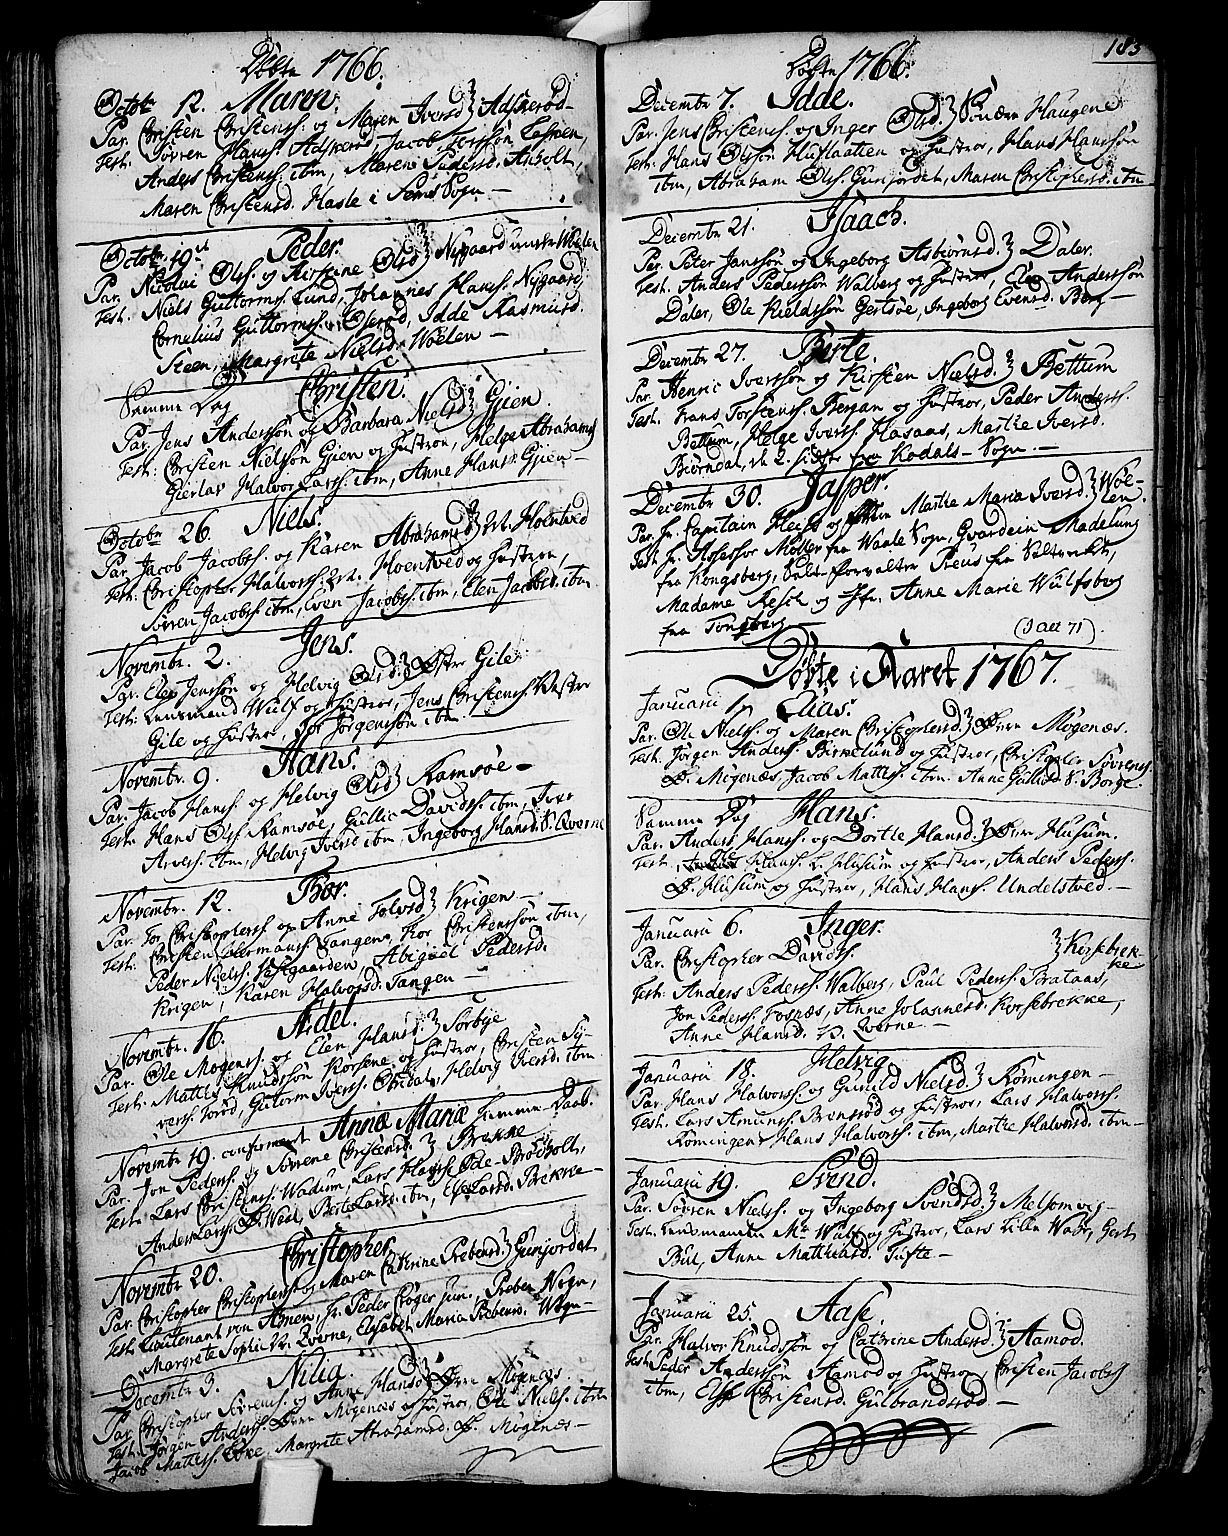 Døbte 1766.
Octobr 12. Maren.
Par. Christen Christens. og Maren Iversd. Adskerød
Test: Søvren Hans. Adskerød, Jacob
Anders Christens. ibm, Maren Anholt,
Maren Christensd. Hasle i Sems Sogn
Octobr 19 Peder.
Par. Nicolai Ols. og Kirstene Olsd. Nygaard under Wølen
Test: Niels Guttorms. Lund, Johannes Hans. Nygaard,
Cornelius Guttorms. Oserød, Idde Rasmusd.
Steen, Margrete Nielsd. Wølen
Samme Dag Christen.
Par. Jens Anderssøn og Barbara Nielsd. Gjen.
Test: Christen Nielssøn Gjen og Hustroe, Helge Abrahams
Gierløv Halvor Lars. ibm, Anne Hansd. Gjen
Octobr 26. Niels.
Par. Jacob Jacobs. og Karen Abrahamsd. Hoentved
Test: Christopher Halvors. Hoentved og Hustroe,
Søvren Jacobs. ibm, Even Jacobs. ibm, Elen Jacobsd. ibm
Novembr. 2. Jens.
Par. Elev Jenssøn og Helvig Olsd. Østre Gile
Test: Lensmand Wulf og Hustroe, Jens Christens. Westre
Gile og Hustroe, Tor Jørgenssøn ibm.
Novembr. 9. Hans.
Par. Jacob Hans. og Helvig Olsd. Ramsøe
Test: Hans Ols. Ramsøe, Gullic Davids. ibm, Iver
Arvess. ibm, Helvig Iversd. ibm, Ingeborg Hansd. Qverne
Novembr. 12. Thor.
Par. Tor Christophers. og Anne Krigen
Test: Christen Hermans. Tangen, Thor Christenssøn ibm,
Peder Niels. Abigael Pedersd.
Krigen, Karen Halvorsd. Tangen
Novembr. 16. Adel.
Par. Ole Mogens. og Elen Hansd. Sørbye
Test: Mattis Knudssøn Korsene og Hustroe, Christen Sy-
vers. Guttorm Ivers. Helvig Iversd. ibm
Novembr 19. confirmeret Anne Marie hjemme Daab.
Par. Jon Peders. og Søvrene Christensd. Brekke
Test: Lars Christens. Wadum, Lars Hans. Brødholt,
Anders Lars. Berte Larsd. ibm, Else Larsd. Brekke
Novembr 20. Christopher.
Par. Christopher Christophers. og Maren Cathrine Prebensd. Gunjordet
Test: Lieutenant von Amen, Hr. Peder Crøger jun., Preben Wegn,
Margrete Sophie Qverne, Elisabet Maria Prebensd. Wegn
Decembr 3. Nilia.
Par. Christopher Søvrens. og Anne Hansd. Østre Møgenæs
Test: Jørgen Anders. Østre Møgenæs og Hustroe, Ole Niels. ibm
Jacob Mattis. Margrete Abrahamsd. Ø. Mogenæs
183
Døbte 1766.
Decembr 7. Idde.
Par. Jens Christens. og Inger Olsd. Søndre Haugene
Test: Hans Olssøn Huslaatten og Hustroe, Hans Hanssøn
ibm, Abraham Ols. Gunjordet, Maren Christophersd. ibm
Decembr 21. Isaach.
Par. Peter Janssøn og Ingeborg Asbiørnsd. Daler.
Test: Anders Pederssøn Walberg og Hustroe, Elev Anderssøn
Daler, Ole Kieldssøn Gertsøe, Ingeborg Evensd. Berg
Decembr 27. Birte.
Par. Henric Iverssøn og Kirsten Nielsd. Bettum
Test: Frans Torstens. Bergan og Hustroe, Peder Anders.
Bettum, Helge Ivers. Hasaas, Marthe Iversd.
Biørndal, de 2. sidste fra Kodals-Sogn.
Decembr 30. Jasper.
Par. Hr. Capitain Hess og Marthe Maria Iversd. Wøe-
len.
Test: Hr. Assessor Møller fra Waale Sogn, Gvardein Madelung
fra Kongsberg, Salt-forvalter Preus fra Saltverket,
Madame Resch og Jfr. Anne Marie Wulfsberg
fra Tonsberg
(I alt 71).
Døbte i Aaret 1767.
Januarii 1. Elias.
Par. Ole Niels. og Maren Christophersd. Østre Møgenæs.
Test: Jørgen Anders. Birkelund og Hustroe, Christopher Søvrens.
Ø. Møgenæs, Jacob Mattis. ibm. Anne Gullicsd. S. Borge.
Samme Dag Hans.
Par. Anders Hans. og Dortte Hansd. Østre Husum.
Test: Hans. L. Husum og Hustroe, Anders Peders.
Ø. Husum og Hustroe, Hans Hans. Undelstved.
Januarii 6. Inger.
Par. Christopher Davids. Korsebrek-
ke
Test: Anders Peders. Walberg, Paul Peders. Brataas,
Jon Peders. Fosnæs, Anne Johannesd. Korsebrekke,
Anne Hansd. N. Qverne.
Januarii 18. Helvig.
Par. Hans Halvors. og Gunild Nielsd. Rømingen
Test: Lars Amuns. Brensrød og Hustroe, Lars Halvors.
Rømingen, Hans Halvors. ibm, Marthe Halvorsd. ibm
Januarii 19. Svend.
Par. Søvren Niels. og Ingeborg Svendsd. Melsomvig
Test: Lensmanden Mr. Wulf og Hustroe, Lars Lille Wahr, Gert
Buil, Anne Mathiasd. Tufte
Januarii 25. Aase.
Par. Halvor Knudssøn og Cathrine Andersd. Aamod.
Test: Peder Anderssøn Aamod og Hustroe, Christen Jacobs.
ibm, Else Christensd. Gulbrandsrød